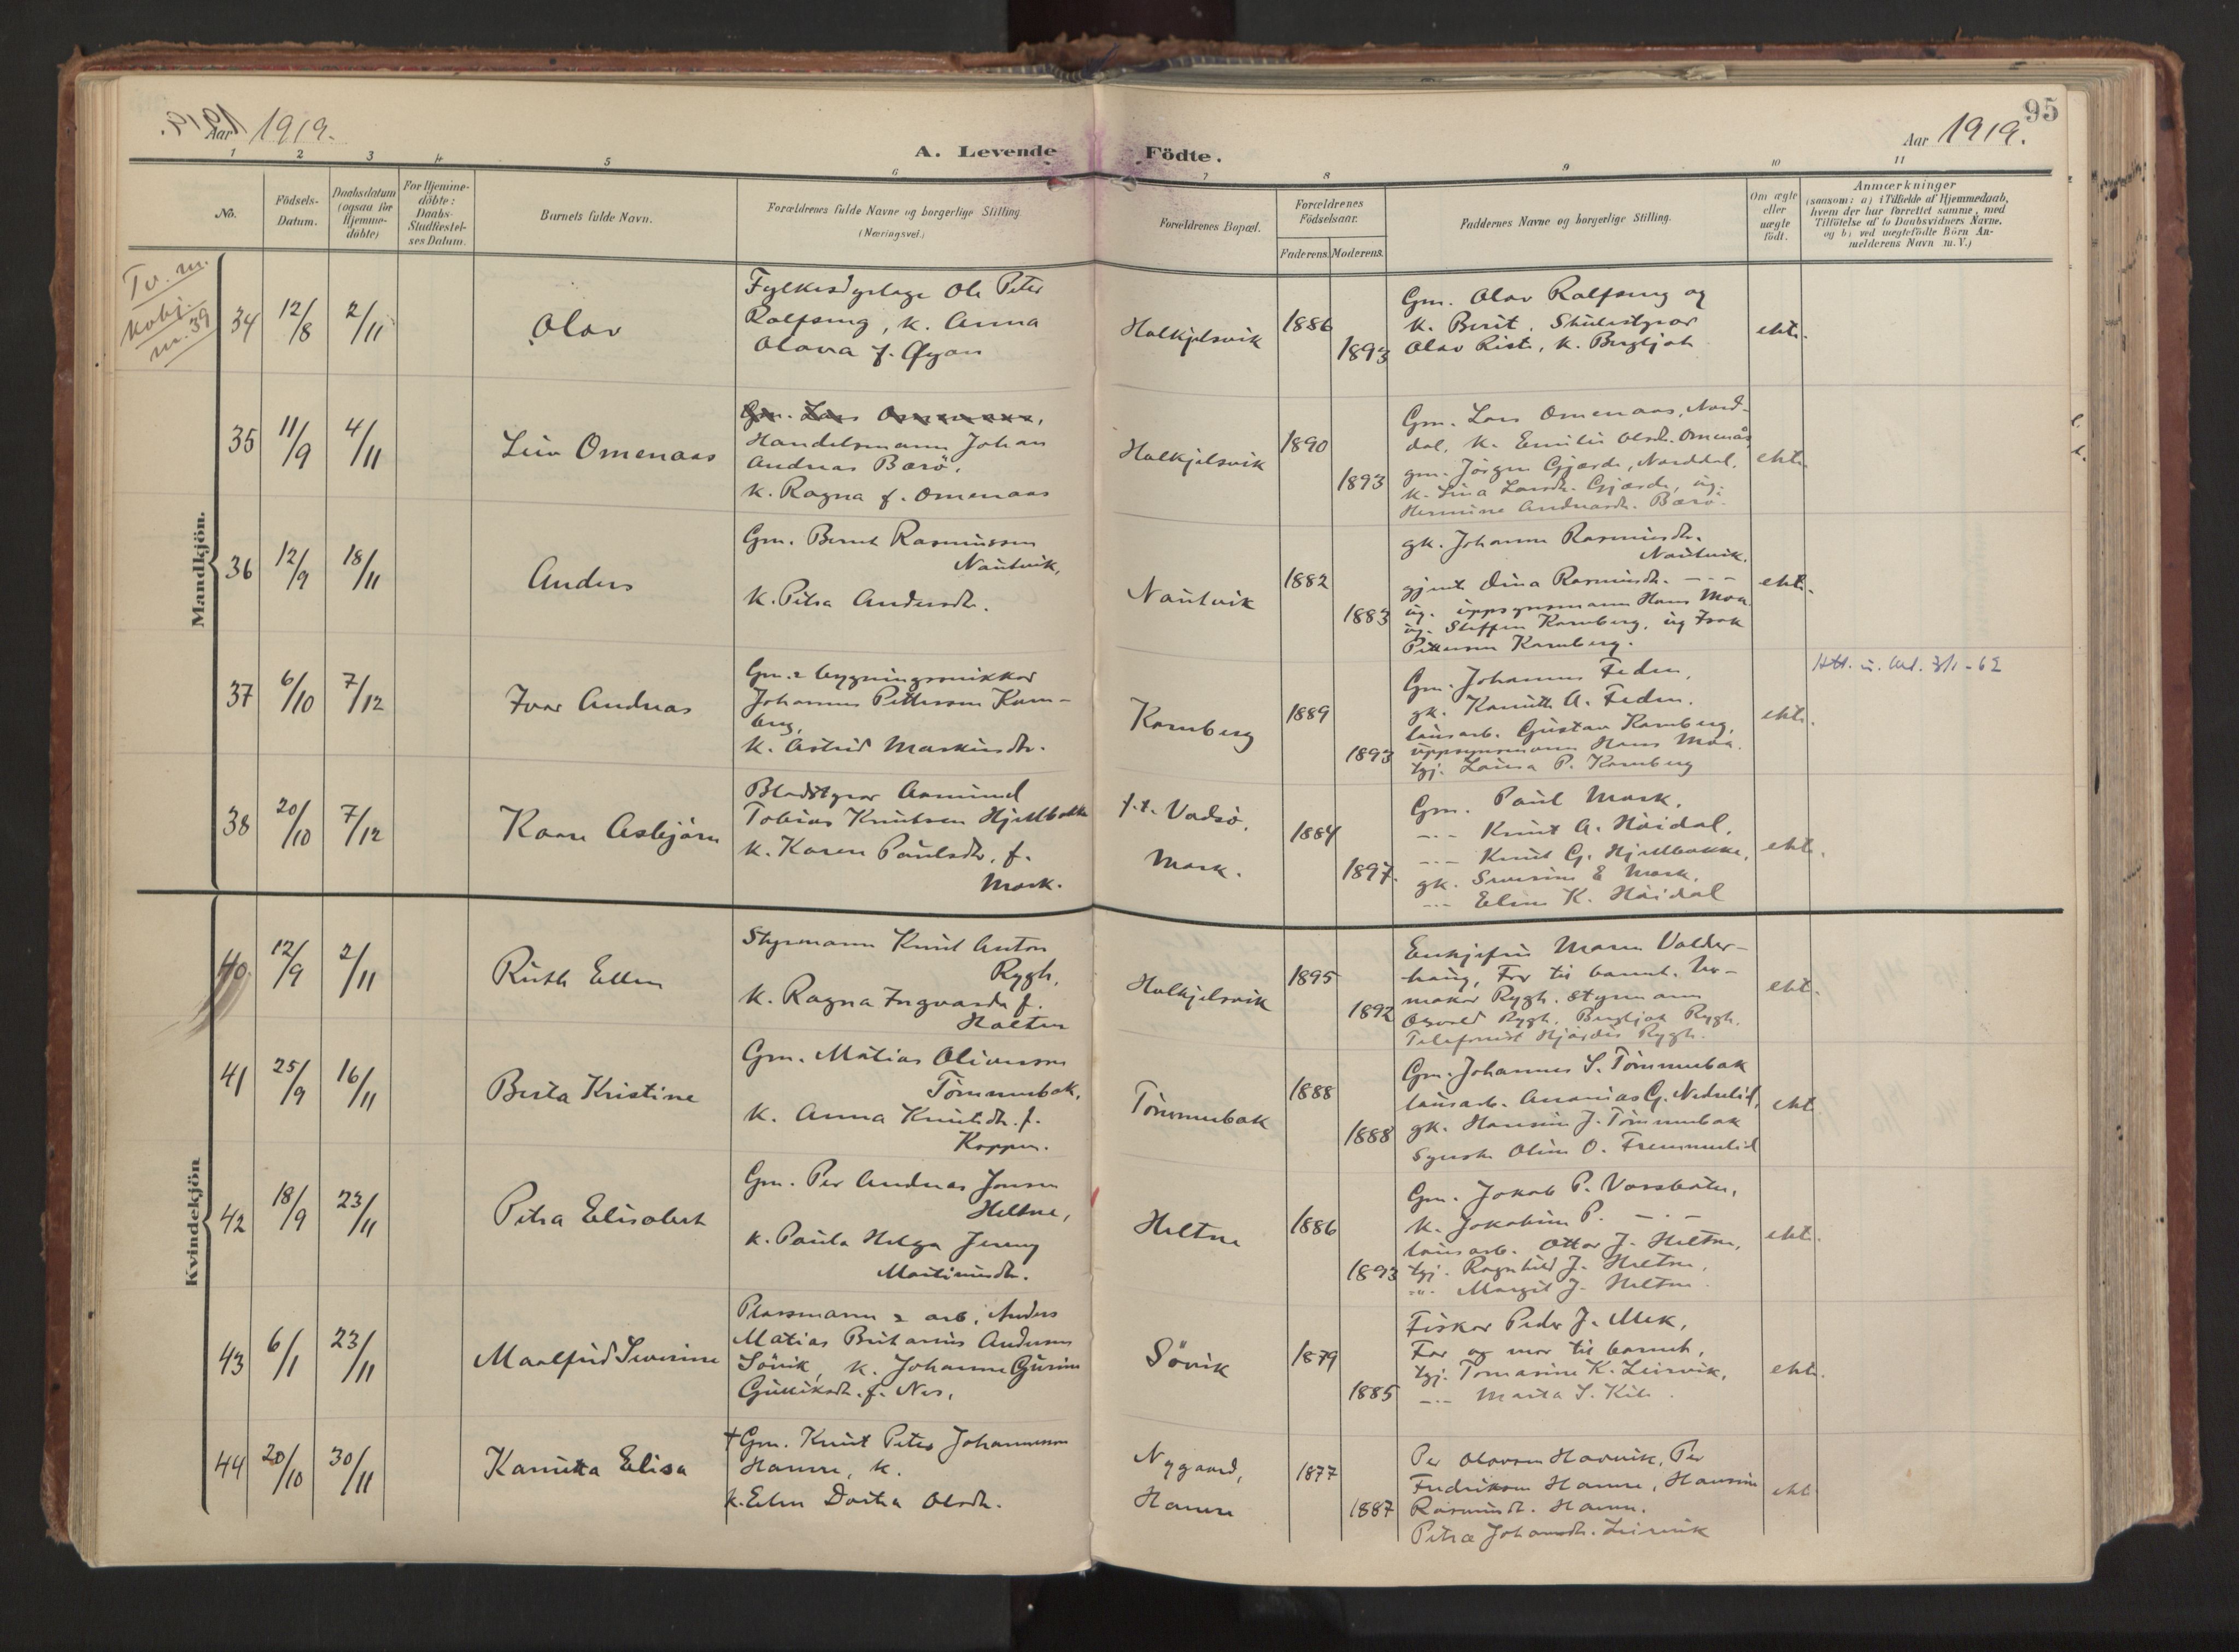 95
Aar 1919.
Aar 1919.
A. Levende Födte.
1 2 3 4 5 6 7 8 9 10 11
No.
Födsels-
Datum.
Daabsdatum
(ogsaa for
Hjemme-
döbte)
For Hjemme-
döbte:
Daabs-
Stadfæstel-
ses Datum.
Barnets fulde Navn.
Forældrenes fulde Navne og borgerlige Stilling.
(Næringsvei.)
Forældrenes Bopæl.
Forældrenes
Födselsaar.
Faderens. Moderens.
Faddernes Navne og borgerlige Stilling.
Om ægte
eller
uægte
födt.
Anmærkninger
(saasom: a) i Tilfælde af Hjemmedaab,
hvem der har forrettet samme, med
Tilföielse af to Daabsvidners Navne,
og b) ved uægtefödte Börn An-
melderens Navn m. V.)
Mandkjön.
Tv. m.
nr. 39
34
12/8
2/11
Olav
Ole Peter
K. Anna
Olava f. Øyan
1886
1893
Gm. Olav Rolfsnes og
K. Berit.
Olav Riste, K. Bergljot
ekte.
35
11/9
4/11
Liv Omenaas
Gm. Lars Omenaas,
Handelsmann Johan
Andreas Barö,
K. Ragna f. Omenaas
1890
1893
Gm. Lars Omenaas, Nord-
dal, K. Emilie Olsdt. Omenås
gm. Jörgen Gjærde, Norddal,
K. Lina Larsdt. Gjærde, ug.
Hermine Andreasdt. Barö.
ekte.
36
12/9
18/11
Anders
Gm. Bernt Rasmussen
Nautvik,
K. Petra Andersdt.
Nautvik
1882
1883
gk. Johanne Rasmusdt.
Nautvik.
gjente Dina Rasmusdt. - - -
ug. uppsynsmann Hans Moa
ug. Steffen Kornberg, ug Isak
Pettersen Kornberg.
ekte.
37
6/10
7/12
Ivar Andreas
Gm. & bygningssnikkar
Johannes Pettersen Korn-
berg,
K. Astrid Markusdt.
Kornberg
1889
1893
Gm. Johannes Feden,
gk. Kanutte A. Feden.
lausarb. Gustav Kornberg,
uppsynsmann Hans Moa.
tgj. Laura P. Kornberg
ekte.
38
20/10
7/12
Kaare Asbjörn
Bladstyrar Aamund
Tobias Knutsen Hjellbakke
K. Karen Paulsdt. f.
Mork.
f.t. Vadsö.
Mork.
1884
1897.
Gm. Paul Mork.
-.- Knut A. Höidal,
-.- Knut G. Hjellbakke,
gk. Severine E Mork.
-.- Eline K. Höidal
ekte.
Kvindekjön
40
12/9
2/11
Ruth Ellen
Styrmann Knut Anton
Rygh,
K. Ragna Ingvarsdt f.
1895
1892
Enkjefru Maren Valder-
haug, Far til barnet.
makar Rygh. Styrmann
Osvald Rygh. Bergljot Rygh.
Telefonist Hjördis Rygh.
ekte.
41
25/9
16/11
Berta Kristine
Gm. Matias Oliversen
Tömmerbak,
K. Anna Knutsdt. f.
Koppen.
Tömmerbak
1888
1888
Gm. Johannes S. Tömmerbak
lausarb. Ananias G. Nedrelid,
gk. Hansine J. Tömmerbak
Syerske Oline O. Fremmerlid
ekte
42
18/9
23/11
Petra Elisabert
Gm. Per Andreas Jonsen
Heltne,
K. Paula Helga Jenny
Martinusdt.
Heltne
1886
1893
Gm. Jakob P. Vassbotn,
K. Jakobine P. - . -
lausarb. Ottar J. Heltne,
tgj. Ragnhild J. Heltne,
-"- Margit J. Heltne.
ekte.
43
6/1
23/11
Maalfrid Severine
Plassmann & arb. Anders
Matias Britanius Andersen
Sövik, K. Johanne Gurine
Gulliksdt. f. Nes.
Sövik
1879
1885
Fiskar Peder J. Mek,
Far og mor til barnet,
tgj. Tomasine K. Leirvik,
-.- Marta S. Kile.
ekte.
44
20/10
30/11
Kanutta Elisa
+ Gm. Knut Peter Johannesen
Hamre, K.
K. Elen Dortea Olsdt.
Nygaard,
Hamre
1877
1887
Per Olavsen Havnvik, Per
Fredriksen Hamre, Hansine
Rasmusdt. Hamre.
Petra Johansdt. Leirvik
ekte